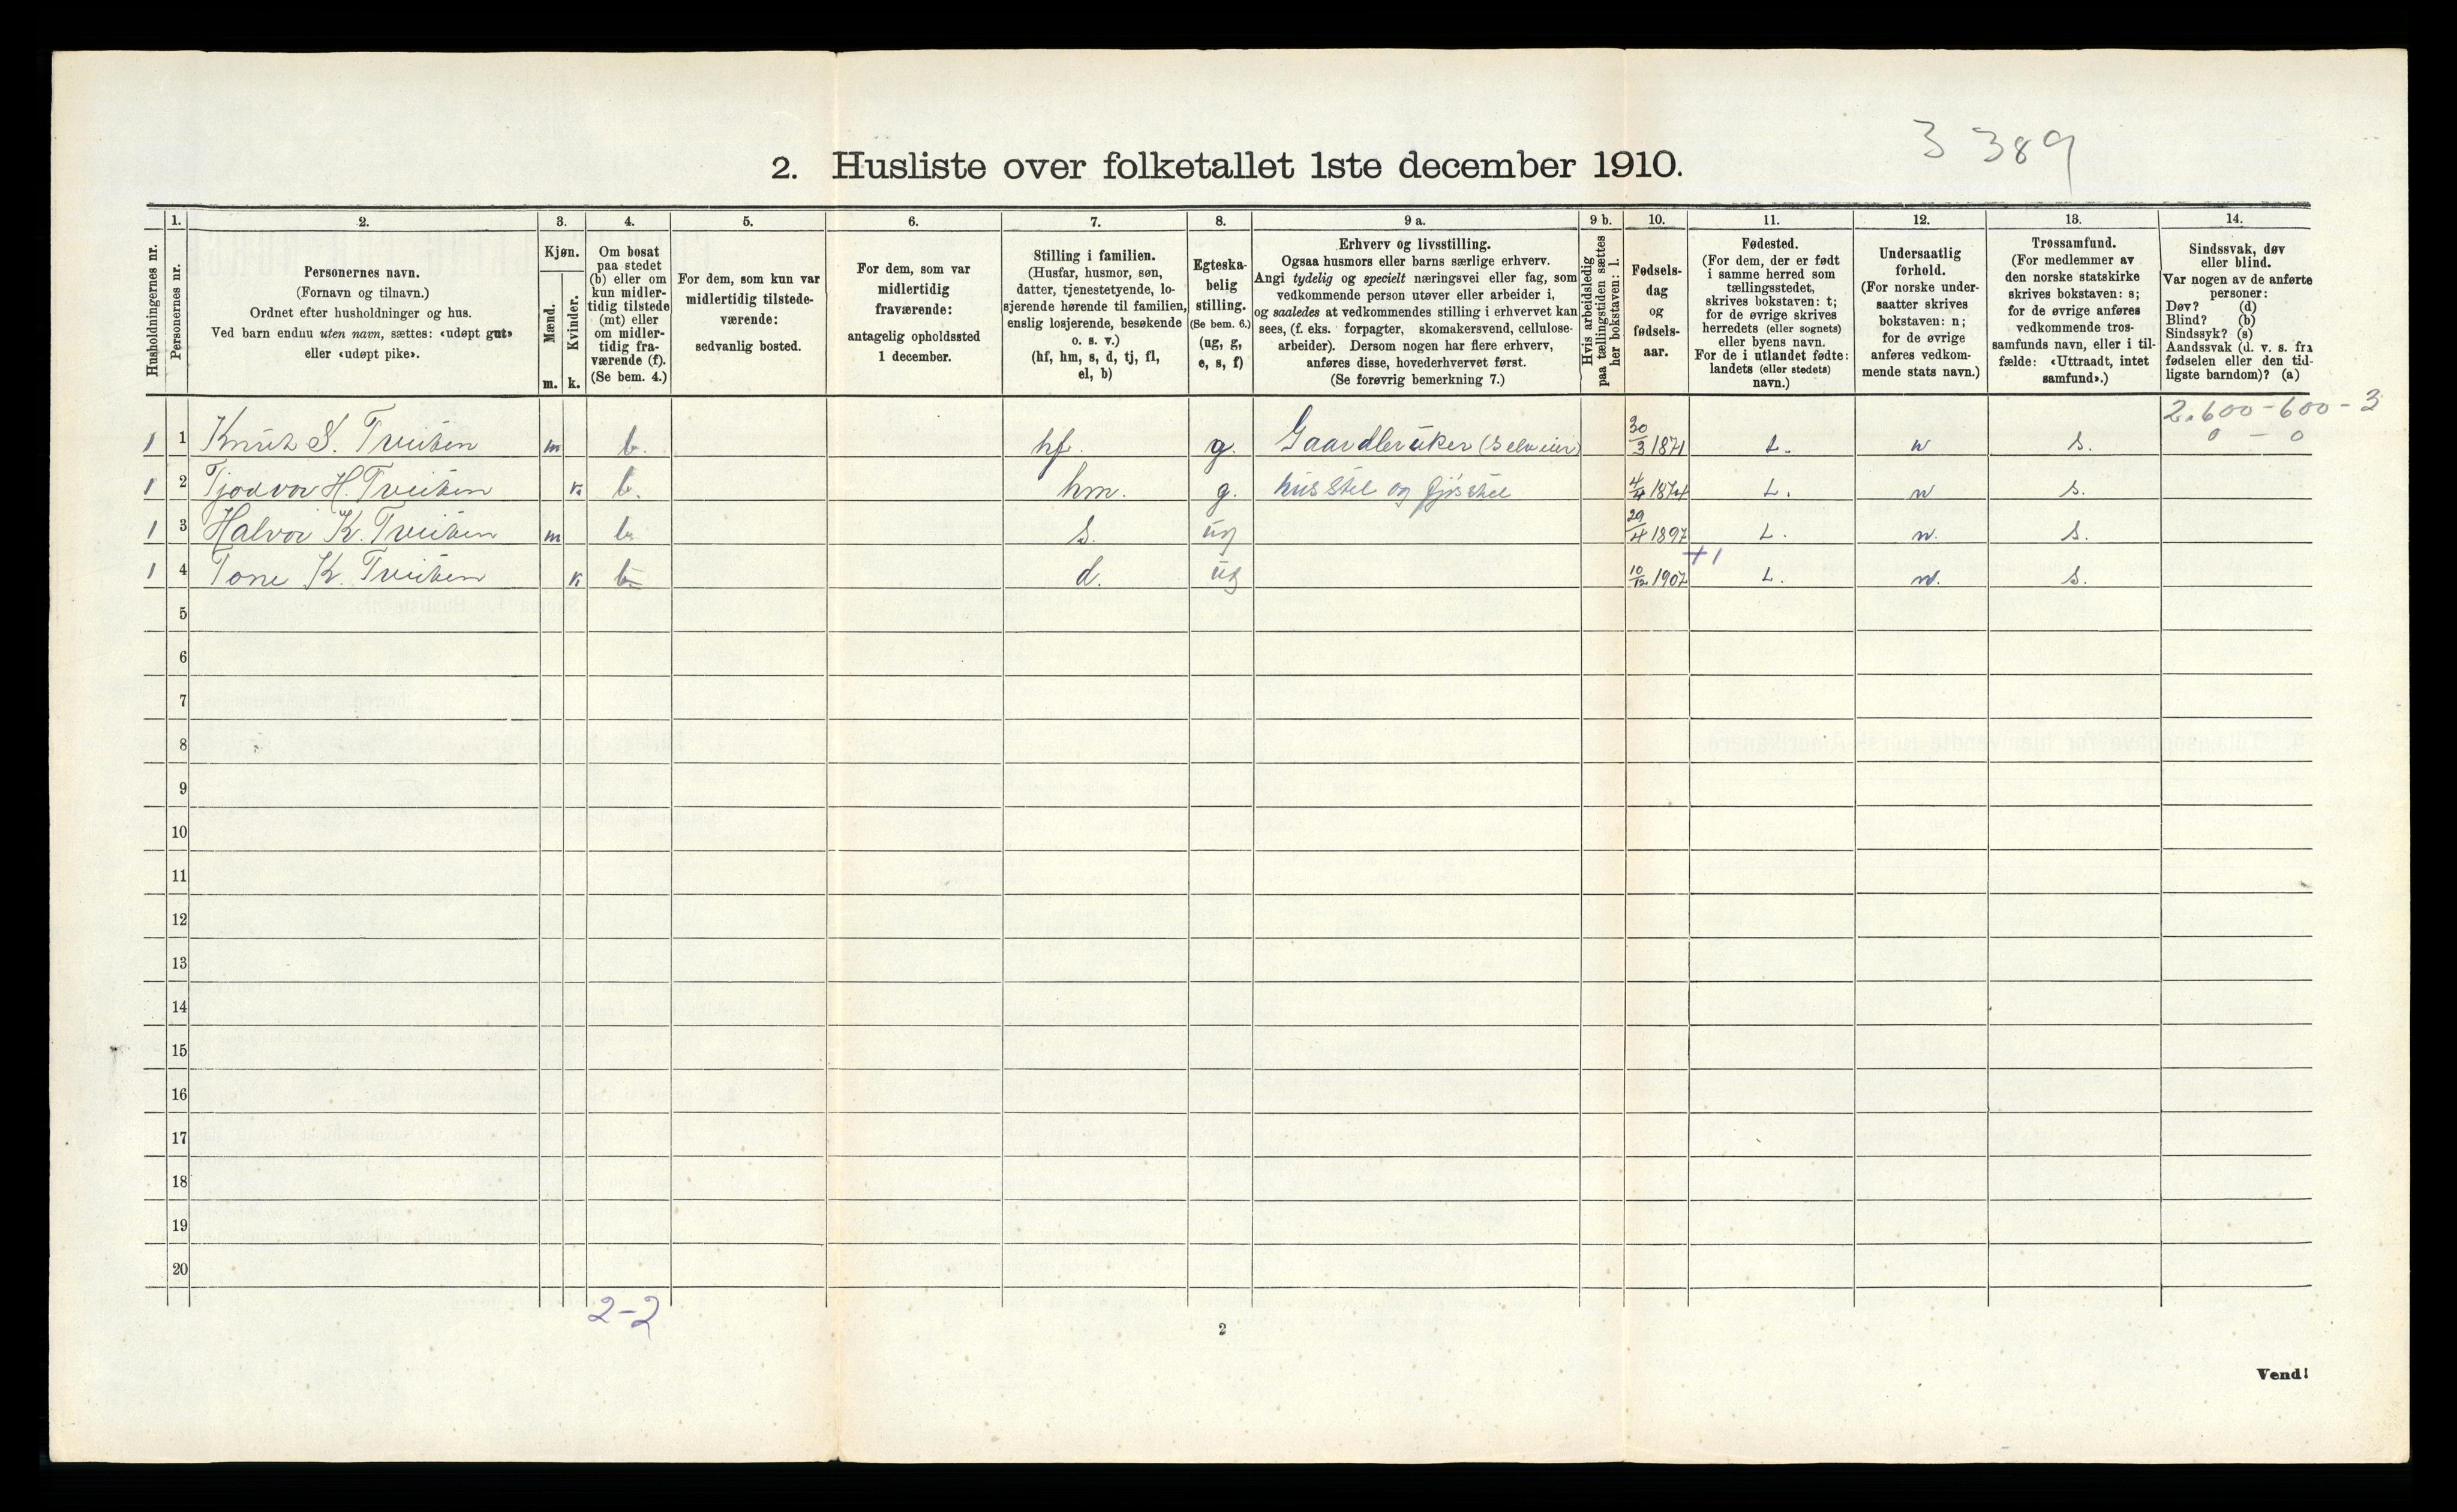 3 389
2. Husliste over folketallet 1ste december 1910.
Husholdningernes nr.
1.
Personernes nr.
2.
Personernes navn.
(Fornavn og tilnavn.)
Ordnet efter husholdninger og hus.
Ved barn endnu uten navn, sættes: «udøpt gut»
eller «udøpt pike».
3.
Kjøn.
Mænd.
m.
Kvinder.
k.
4.
Om bosat
paa stedet
(b) eller om
kun midler-
tidig tilstede
(mt) eller
om midler-
tidig fra-
værende (f).
(Se bem. 4.)
5.
For dem, som kun var
midlertidig tilstede-
værende:
sedvanlig bosted.
6.
For dem, som var
midlertidig
fraværende:
antagelig opholdssted
1 december.
7.
Stilling i familien.
(Husfar, husmor, søn,
datter, tjenestetyende, lo-
sjerende hørende til familien,
enslig losjerende, besøkende
o. s. v.)
(hf, hm, s, d, tj, fl,
el, b)
8.
Egteska-
belig
stilling.
(Se bem. 6.)
(ug, g,
e, s, f)
9 a.
Erhverv og livsstilling.
Ogsaa husmors eller barns særlige erhverv.
Angi tydelig og specielt næringsvei eller fag, som
vedkommende person utøver eller arbeider i,
og saaledes at vedkommendes stilling i erhvervet kan
sees, (f. eks. forpagter, skomakersvend, cellulose-
arbeider). Dersom nogen har flere erhverv,
anføres disse, hovederhvervet først.
(Se forøvrig bemerkning 7.)
9 b.
Hvis arbeidsledig
paa tællingstiden sættes
her bokstaven: l.
10.
Fødsels-
dag
og
fødsels-
aar.
11.
Fødested.
(For dem, der er født
i samme herred som
tællingsstedet,
skrives bokstaven: t;
for de øvrige skrives
herredets (eller sognets)
eller byens navn.
For de i utlandet fødte:
landets (eller stedets)
navn.)
12.
Undersaatlig
forhold.
(For norske under-
saatter skrives
bokstaven: n;
for de øvrige
anføres vedkom-
mende stats navn.)
13.
Trossamfund.
(For medlemmer av
den norske statskirke
skrives bokstaven: s;
for de øvrige anføres
vedkommende tros-
samfunds navn, eller i til-
fælde: «Uttraadt, intet
samfund».)
14.
Sindssvak, døv
eller blind.
Var nogen av de anførte
personer:
Døv? (d)
Blind? (b)
Sindssyk? (s)
Aandssvak (d. v. s. fra
fødselen eller den tid-
ligste barndom)? (a)
2.600-600-3
0 - 0
1 1 Knut S. Tveiten m b. hf. g. Gaardbruker (selveier) 30/3 1871 t. n s.
1 2 Tjodvor H. Tveiten k. b. hm. g. husstel og fjøsstel 4/4 1874 t. n s.
1 3 Halvor K. Tveiten m b. s. ug 29/4 1897 t. n. s.
+1
1 4 Tone K. Tveiten k b. d. ug 10/12 1907 t. n. s.
5
6
7
8
9
10
11
12
13
14
15
16
17
18
19
20
2-2
2
Vend!